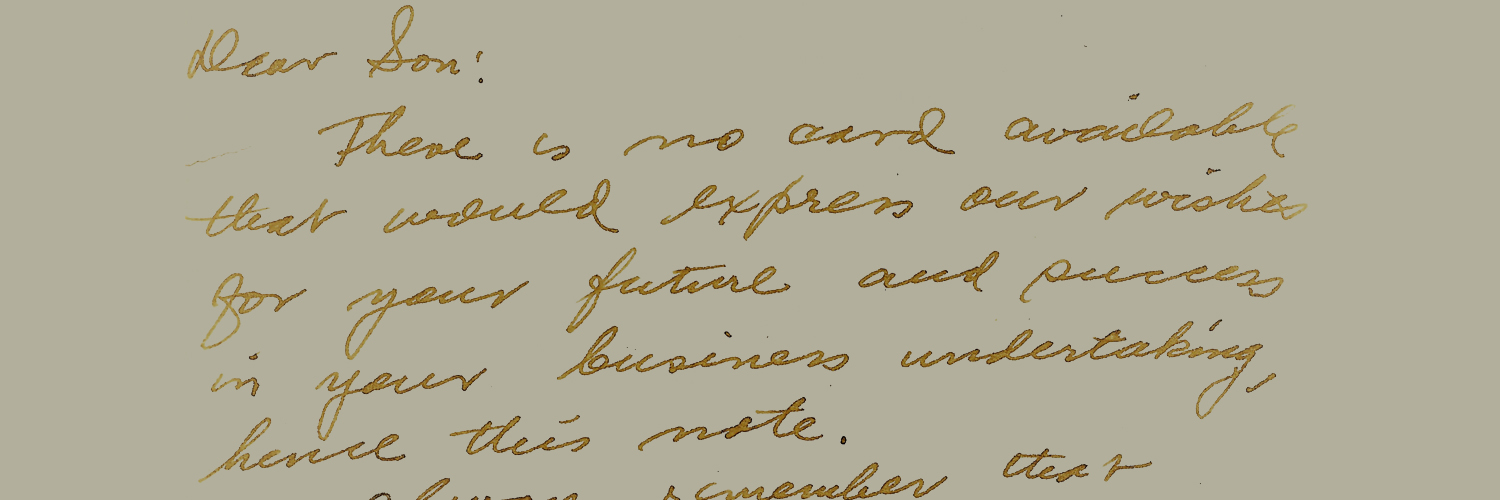 Dear Son:
There is no card available
that would express our wishes
for your future and success
in your business undertaking,
hence this note.
Always remember that